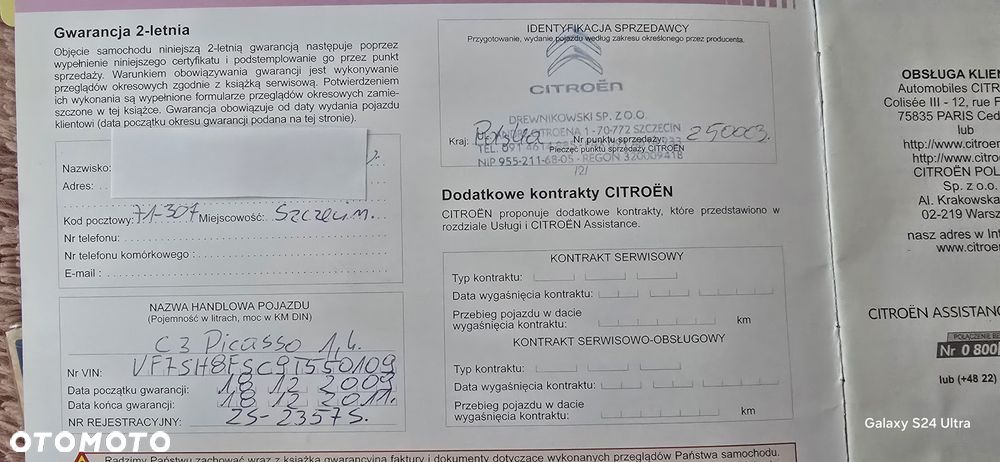 Gwarancja 2-letnia
Objęcie samochodu niniejszą 2-letnią gwarancją następuje poprzez
wypełnienie niniejszego certyfikatu i podstemplowanie go przez punkt
sprzedaży. Warunkiem obowiązywania gwarancji jest wykonywanie
przeglądów okresowych zgodnie z książką serwisową. Potwierdzeniem
ich wykonania są wypełnione formularze przeglądów okresowych zamie-
szczone w tej książce. Gwarancja obowiązuje od daty wydania pojazdu
klientowi (data początku okresu gwarancji podana na tej stronie).
Nazwisko:
Adres:
Kod pocztowy: 71-307 Miejscowość: Szczecin.
Nr telefonu:
Nr telefonu komórkowego:
E-mail:
NAZWA HANDLOWA POJAZDU
(Pojemność w litrach, moc w KM DIN)
C3 Picasso 1,4.
Nr VIN: VF7SH8FSC9T550109
Data początku gwarancji: 18 12 2009
Data końca gwarancji: 18 12 2011.
NR REJESTRACYJNY: ZS-2357S.
IDENTYFIKACJA SPRZEDAWCY
Przygotowanie, wydanie pojazdu według zakresu określonego przez producenta.
CITROËN
DREWNIKOWSKI SP. Z O.O.
CITROENA 1 · 70-772 SZCZECIN
Kraj: Polska Nr punktu sprzedaży: 25000J.
TEL. 091 461
Pieczęć punktu sprzedaży CITROËN
NIP 955-211-68-05 · REGON 320009418
/2/
Dodatkowe kontrakty CITROËN
CITROËN proponuje dodatkowe kontrakty, które przedstawiono w
rozdziale Usługi i CITROËN Assistance.
KONTRAKT SERWISOWY
Typ kontraktu:
Data wygaśnięcia kontraktu:
Przebieg pojazdu w dacie
wygaśnięcia kontraktu: km
KONTRAKT SERWISOWO-OBSŁUGOWY
Typ kontraktu:
Data wygaśnięcia kontraktu:
Przebieg pojazdu w dacie
wygaśnięcia kontraktu: km
Radzimy Państwu zachować wraz z książką gwarancyjną faktury i dokumenty dotyczące wykonanych przeglądów Państwa samochodu.
OBSŁUGA KLIEN
Automobiles CITR
Colisée III - 12, rue F
75835 PARIS Ced
lub
http://www.citroe
http://www.citro
CITROËN POL
Sp. z o.o.
Al. Krakowska
02-219 Warsz
nasz adres w Int
www.citroe
CITROËN ASSISTANC
POŁĄCZENIE BE
Nr 0 800
lub (+48 22)
Galaxy S24 Ultra
OTOMOTO